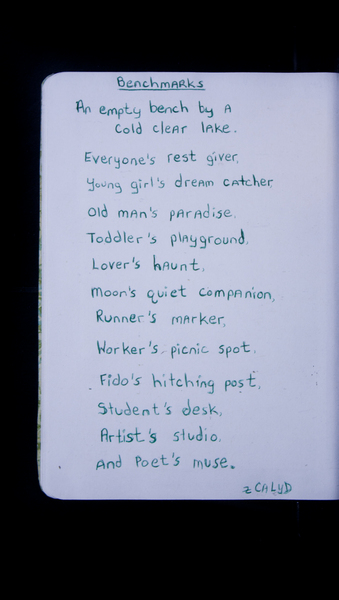 Benchmarks
An empty bench by a
cold clear lake.
Everyone's rest giver,
Young girl's dream catcher,
Old man's paradise,
Toddler's playground,
Lover's haunt,
Moon's quiet companion,
Runner's marker,
Worker's picnic spot,
Fido's hitching post,
Student's desk,
Artist's studio,
And Poet's muse.
z CALYD